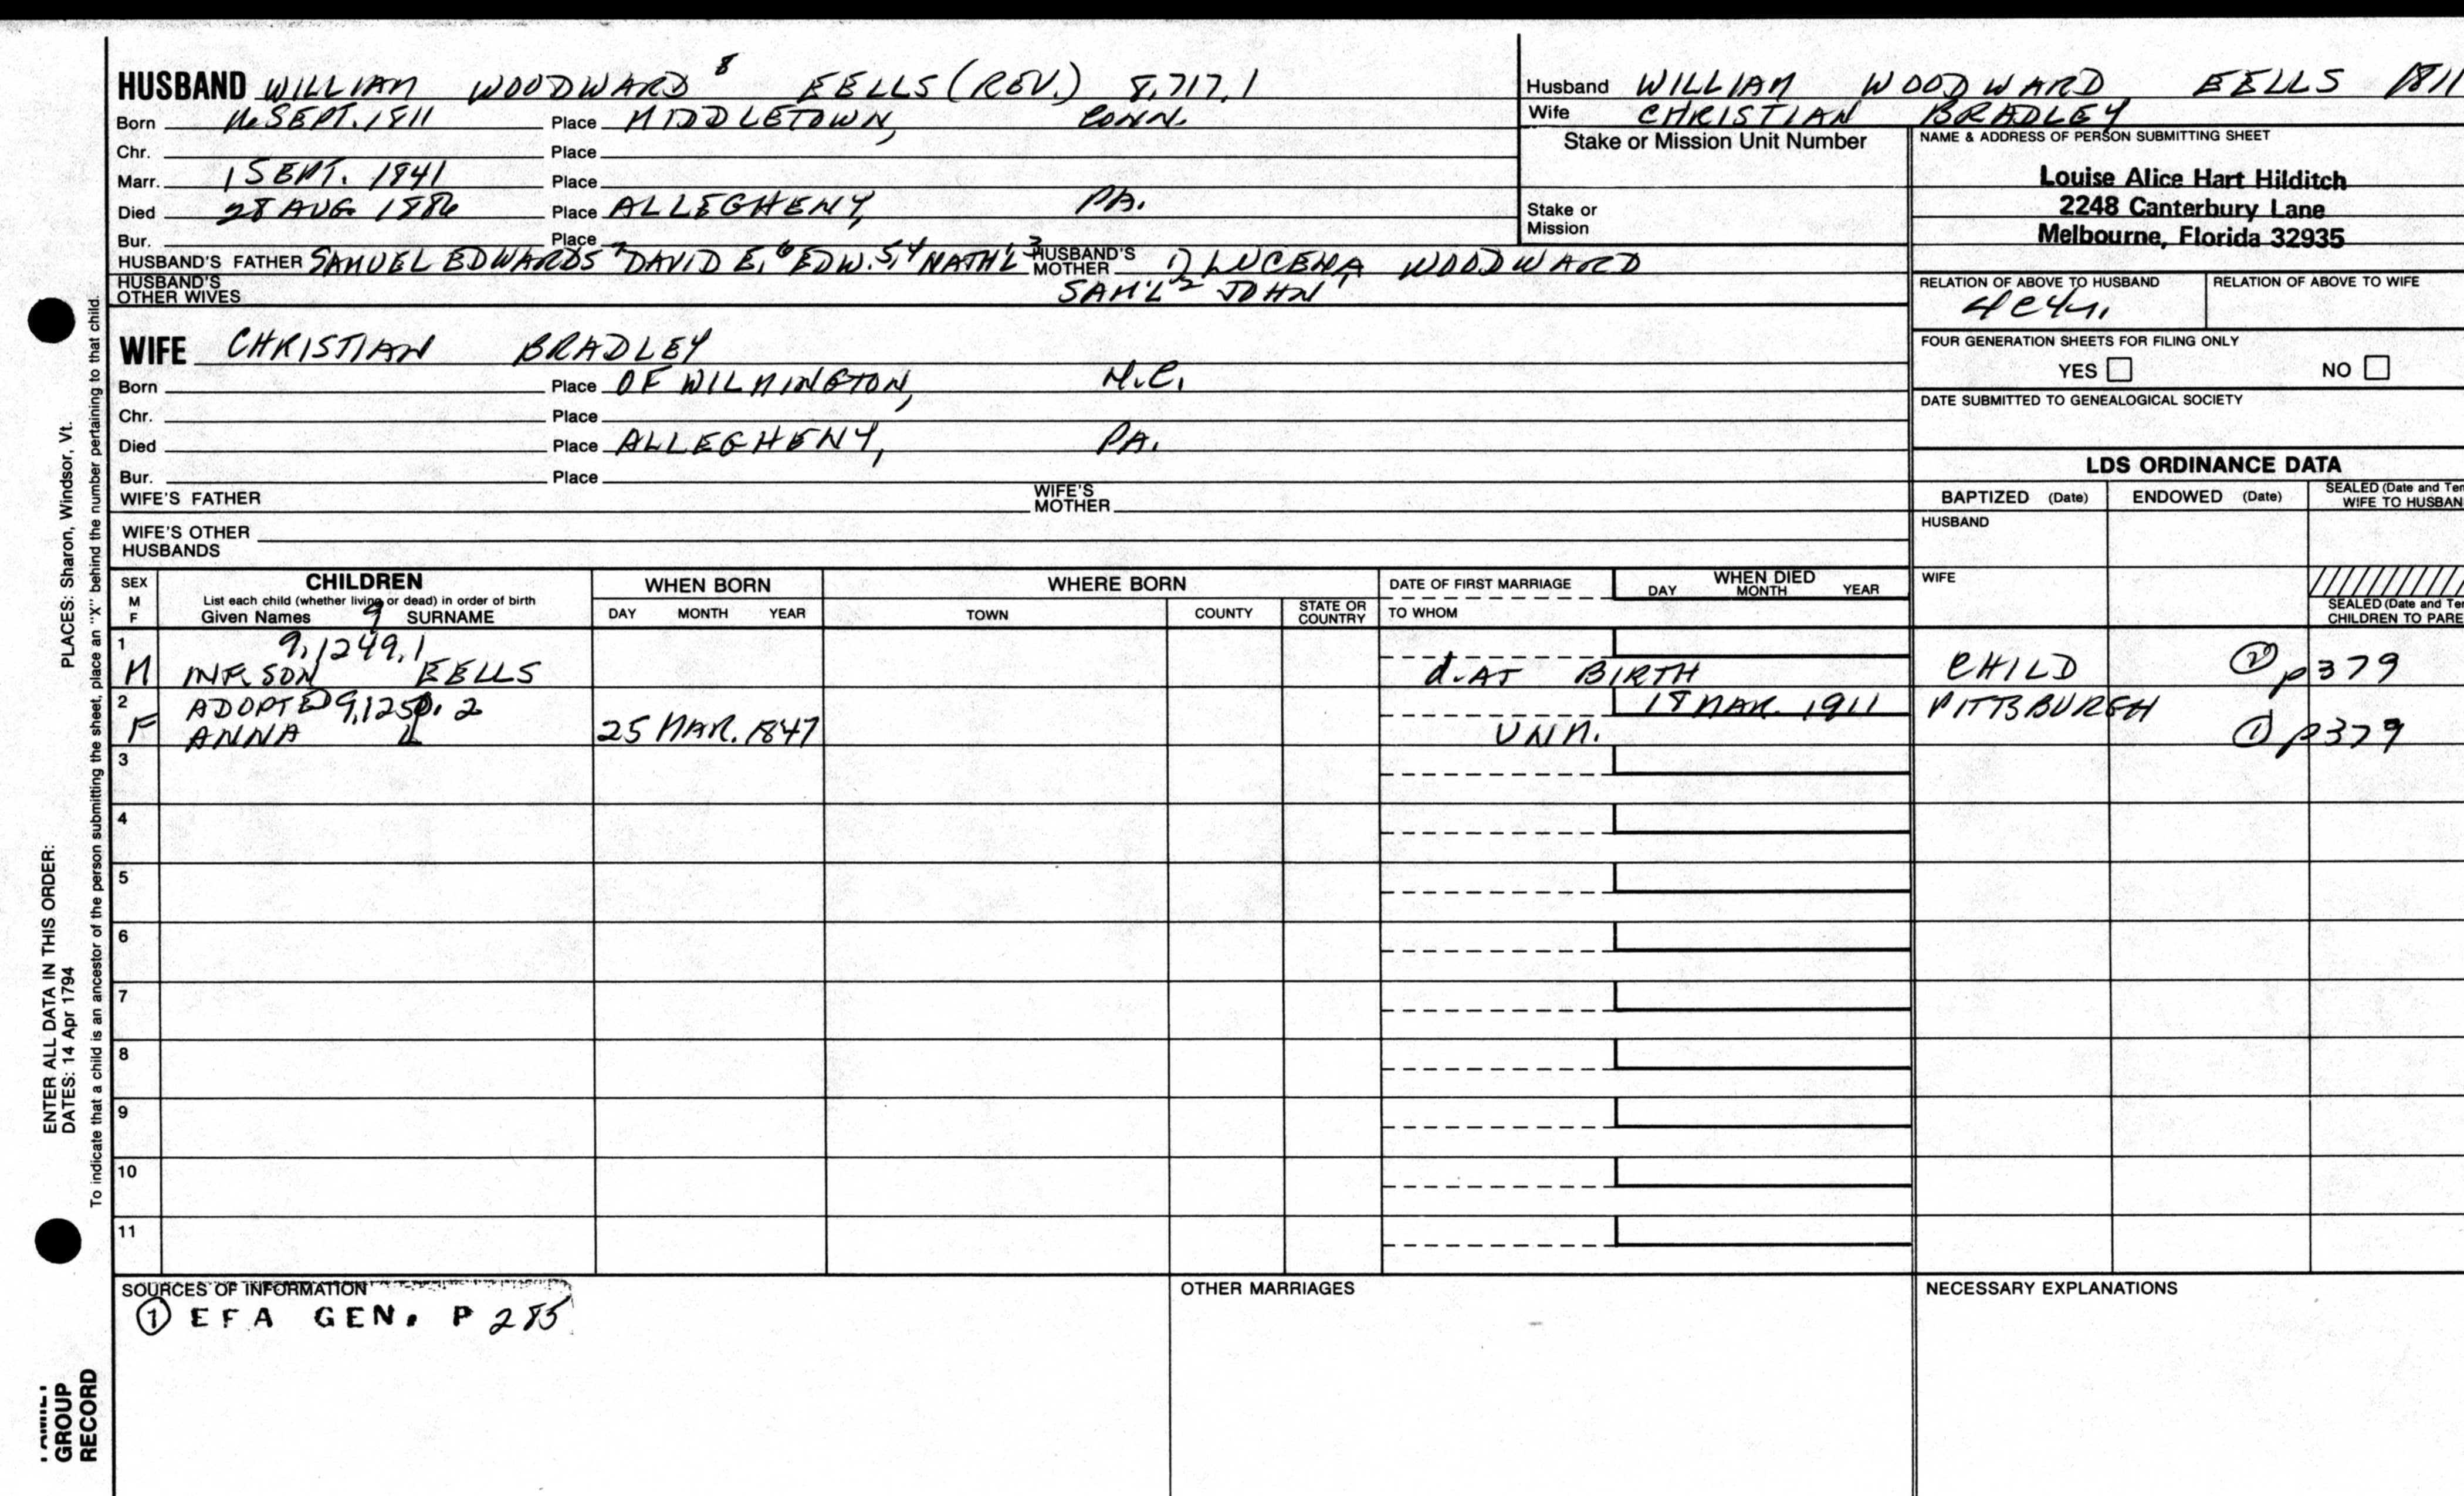 HUSBAND WILLIAM WOODWARD 8 EELLS (REV.) 8,717.1
Born 16 SEPT. 1811 Place MIDDLETOWN, CONN.
Chr. Place
Marr. 1 SEPT. 1841 Place
Died 28 AUG 1886 Place ALLEGHENY, PA.
Bur. Place
HUSBAND'S FATHER SAMUEL EDWARDS 7 DAVID E. 6 EDW. 5,4 NATH'L 3 HUSBAND'S MOTHER 1) LUCENA WOODWARD
HUSBAND'S OTHER WIVES SAM'L 2 JOHN 1
WIFE CHRISTIAN BRADLEY
Born Place OF WILMINGTON, N.C.
Chr. Place
Died Place ALLEGHENY, PA.
Bur. Place
WIFE'S FATHER WIFE'S MOTHER
WIFE'S OTHER HUSBANDS
Husband WILLIAM WOODWARD EELLS 1811
Wife CHRISTIAN BRADLEY
Stake or Mission Unit Number
Stake or Mission
NAME & ADDRESS OF PERSON SUBMITTING SHEET
Louise Alice Hart Hilditch
2248 Canterbury Lane
Melbourne, Florida 32935
RELATION OF ABOVE TO HUSBAND RELATION OF ABOVE TO WIFE
FOUR GENERATION SHEETS FOR FILING ONLY
YES NO
DATE SUBMITTED TO GENEALOGICAL SOCIETY
LDS ORDINANCE DATA
BAPTIZED (Date) ENDOWED (Date) SEALED (Date and Tem
WIFE TO HUSBAN
HUSBAND
WIFE
SEALED (Date and Te
CHILDREN TO PARE
SEX M F
CHILDREN
List each child (whether living or dead) in order of birth
Given Names 9 SURNAME
WHEN BORN
DAY MONTH YEAR
WHERE BORN
TOWN COUNTY STATE OR COUNTRY
DATE OF FIRST MARRIAGE
TO WHOM
WHEN DIED
DAY MONTH YEAR
1 9,1249.1
M INF. SON EELLS d. AT BIRTH CHILD 2 p379
2 ADOPTED 9,1250.2 18 MAR. 1911 PITTSBURGH
F ANNA 25 MAR. 1847 UNM. 1 p379
3
4
5
6
7
8
9
10
11
SOURCES OF INFORMATION
1 EFA GEN. P 285
OTHER MARRIAGES
NECESSARY EXPLANATIONS
PLACES: Sharon, Windsor, Vt.
ENTER ALL DATA IN THIS ORDER:
DATES: 14 Apr 1794
To indicate that a child is an ancestor of the person submitting the sheet, place an "X" behind the number pertaining to that child.
GROUP
RECORD